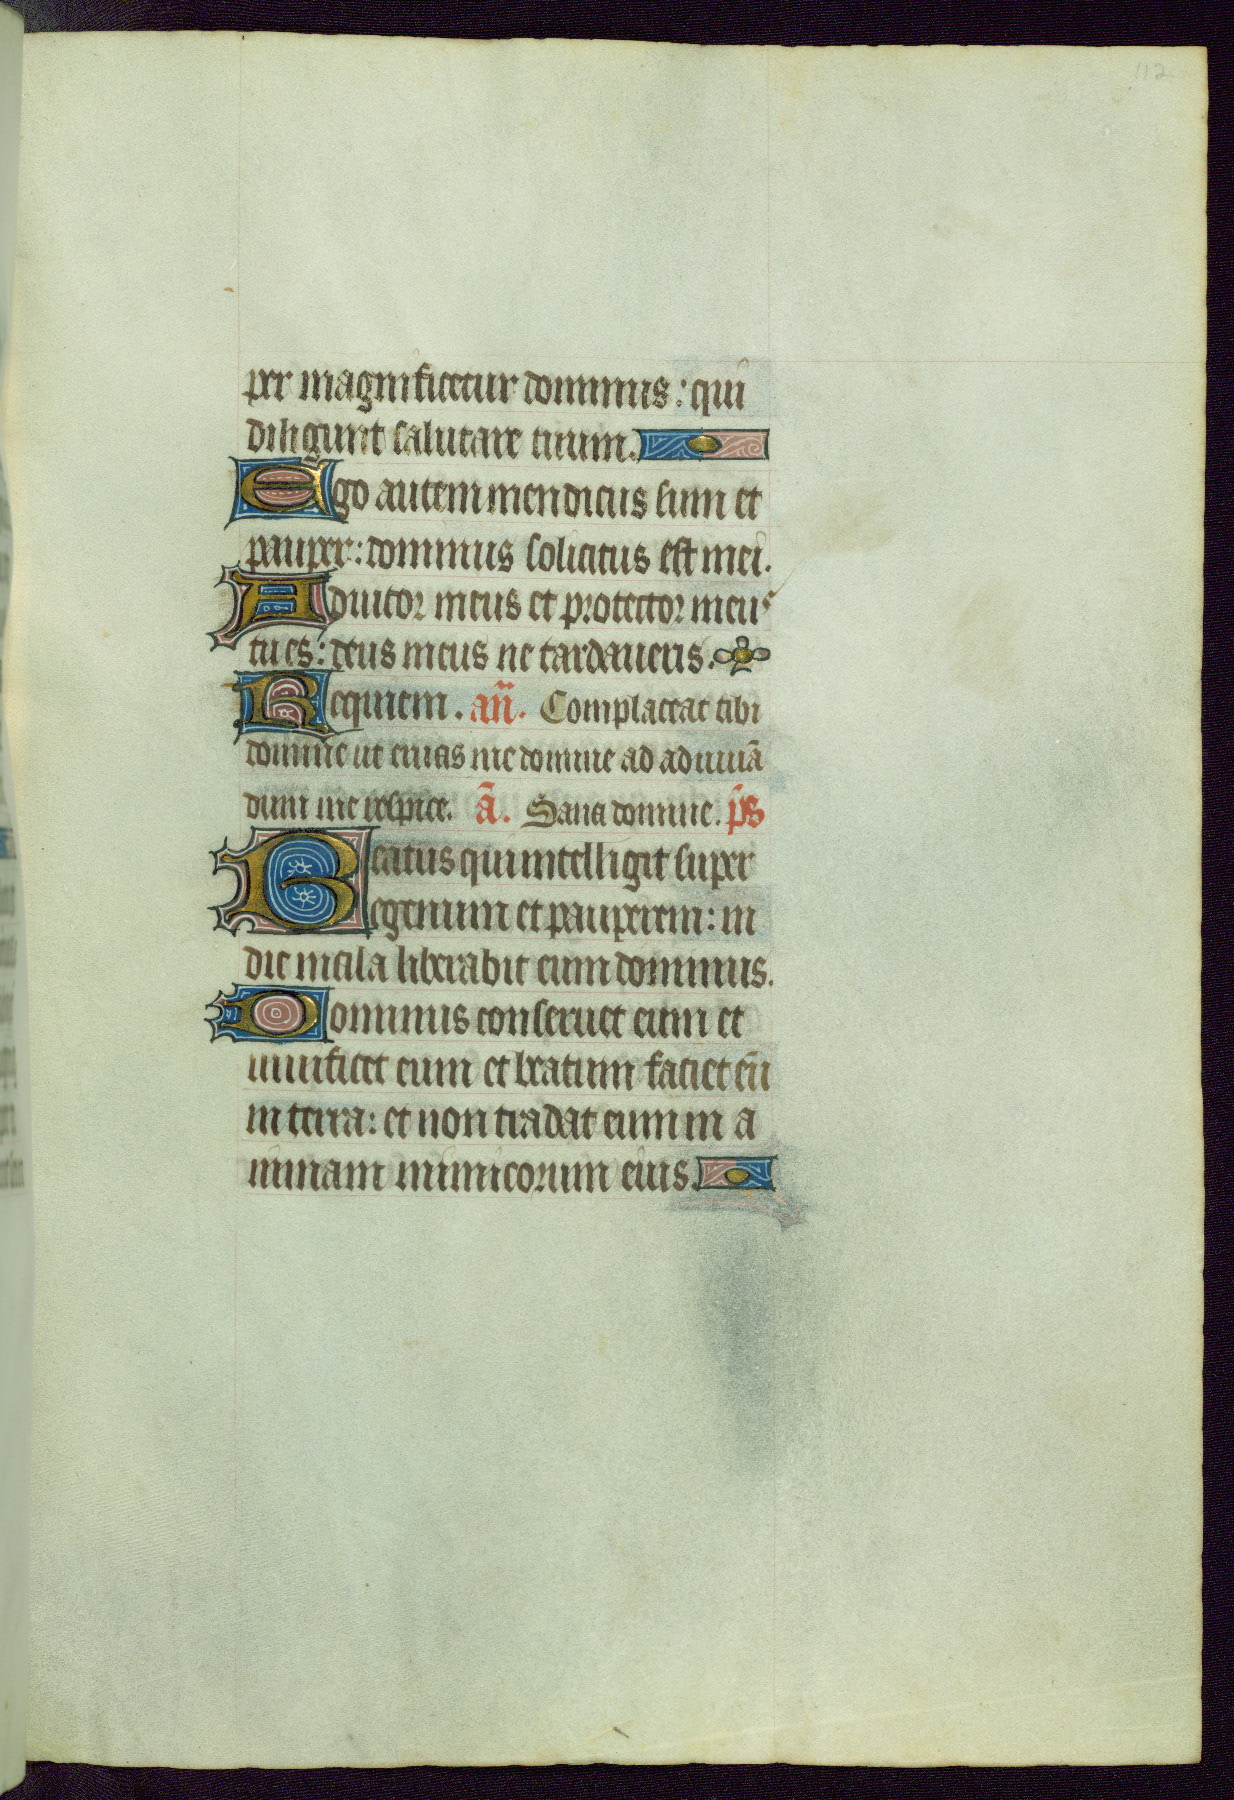 112
per magnificetur dominus: qui
diligunt salutare tuum.
Ego autem mendicus sum et
pauper: dominus solicitus est mei.
Adiutor meus et protector meus
tu es: deus meus ne tardaueris.
Requiem. an̄. Complaceat tibi
domine ut eruas me domine ad adiuuā
dum me respice. ā. Sana domine. p̄s
Beatus qui intelligit super
egenum et pauperem: in
die mala liberabit eum dominus.
Dominus conseruet eum et
uiuificet eum et beatum faciet eū
in terra: et non tradat eum in a
nimam inimicorum eius.